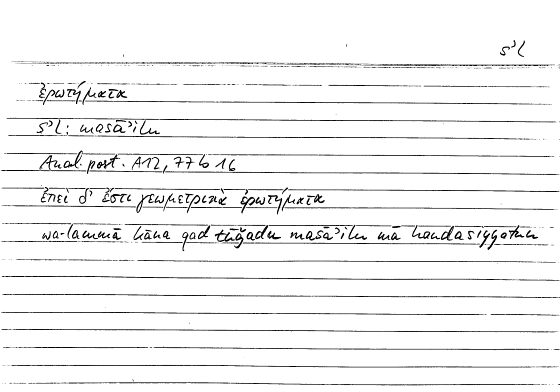 sʾl
ἐρωτήματα
sʾl: masāʾilu
Anal. post. A12, 77 b 16
ἐπεὶ δ᾽ ἔστι γεωμετρικὰ ἐρωτήματα
wa-lammā kāna qad tūǧadu masāʾilu mā handasiyyatun